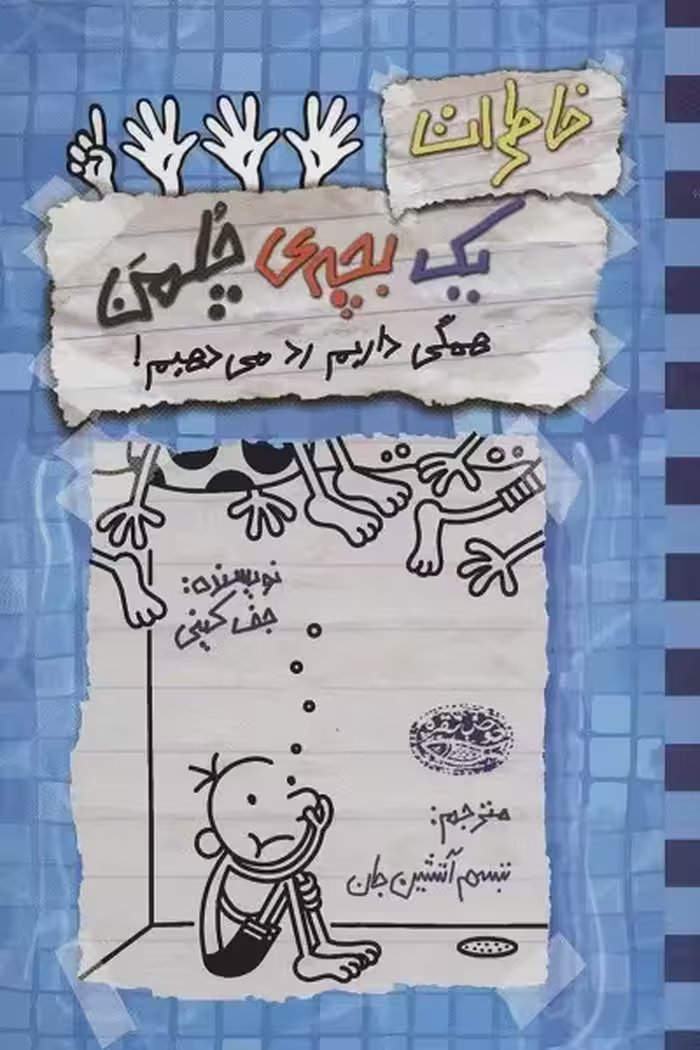 خاطرات
یک بچه‌ی چُلمَن
همگی داریم رد می‌دهیم!
نویسنده:
جف کینی
مترجم:
تبسم آتشین جان